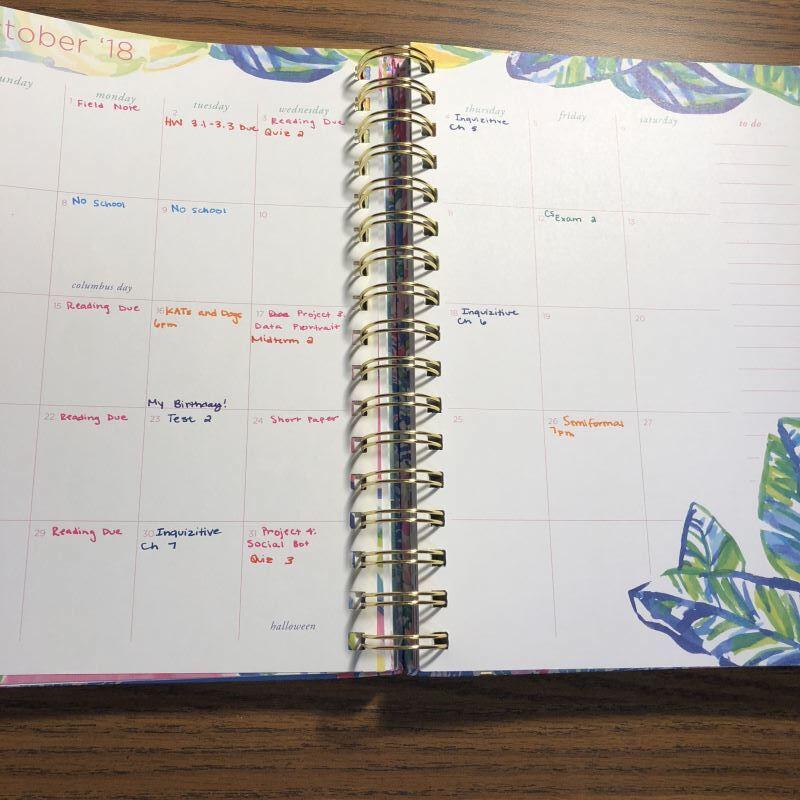 tober '18
unday
monday
tuesday
wednesday
thursday
friday
saturday
to do
1 Field Note
2
HW 3.1-3.3 Due
3 Reading Due
Quiz 2
4 Inquizitive
Ch 5
5
6
8 No School
columbus day
9 No school
10
11
12 CS Exam 2
13
15 Reading Due
16 KATs and Dogs
6pm
My Birthday!
17 Project 3:
Data Portrait
Midterm 2
18 Inquizitive
Ch 6
19
20
22 Reading Due
23 Test 2
24 Short Paper
25
26 Semiformal
7pm
27
29 Reading Due
30 Inquizitive
Ch 7
31 Project 4:
Social Bot
Quiz 3
halloween